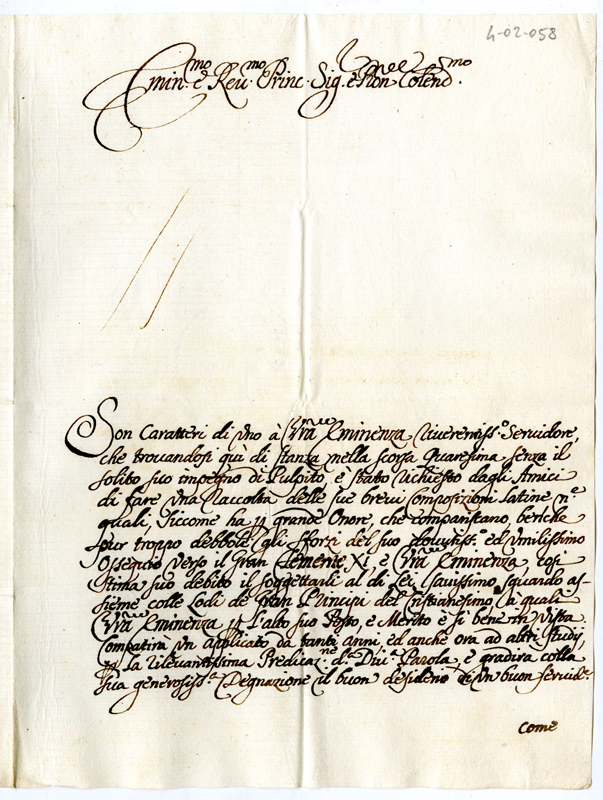 4-02-058
Emin.mo e Reu.mo Princ. Sig. e Pron Colend.mo
Son Caratteri di Vno à Vra Eminenza riuerentiss.o Seruidore,
che trouandosi qui di stanza nella scorsa Quaresima senza il
solito suo impegno di Pulpito, è stato richiesto dagli Amici
di fare Vna Raccolta delle sue breui Composizioni latine, n.e
quali, Siccome ha p grande Onore, che compariscano, benche
pur troppo debbole gli sforzi del suo douutiss.o ed Vmilissimo
Ossequio Verso il Gran Clemente XI, e Vra Eminenza, così
stima suo debito il soggettarli al di Lei Sauissimo sguardo as=
sieme colle Lodi de Gran Principi del Cristianesimo, a quali
Vra Eminenza p l'alto suo Posto, e Merito è si bene in Vista.
Compatirà Vn applicato da tanti anni, ed anche ora ad altri studij,
p la rileuantissima Predicaz.ne d.a Diu.a Parola, e gradirà colla
sua generosiss.a Degnazione il buon desiderio di Vn buon seruid.e
Come